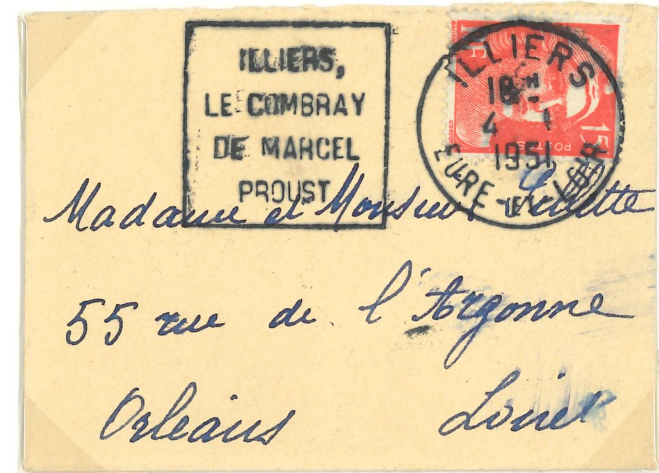 ILLIERS,
LE COMBRAY
DE MARCEL
PROUST
ILLIERS
18H
4 1
1951
EURE-ET-LOIR
15F
POSTES
Madame et Monsieur
55 rue de l'Argonne
Orléans Loiret